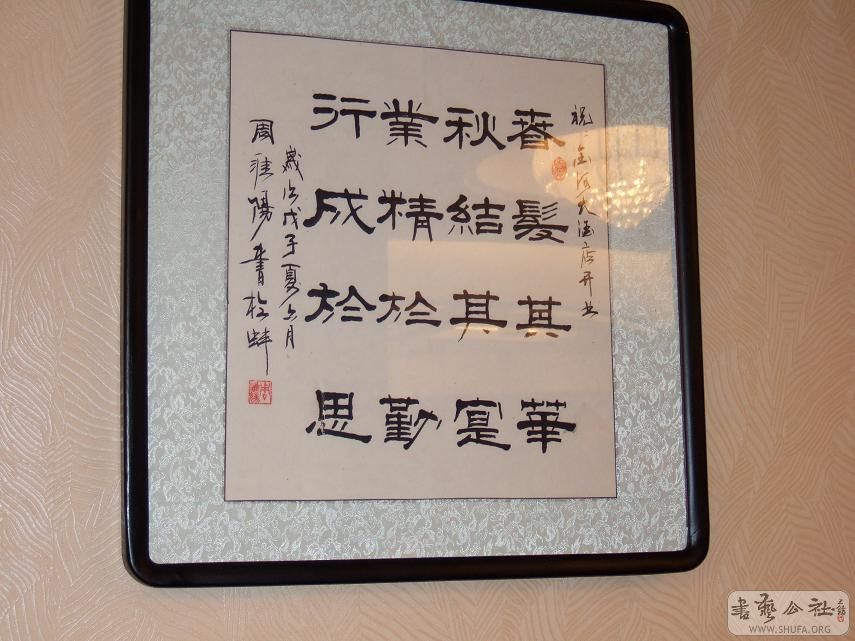 祝金河大酒店开业
春髮其華
秋結其寔
業精於勤
行成於思
歲次戊子夏六月
周雅陽書於蚌
書藝公社
WWW.SHUFA.ORG